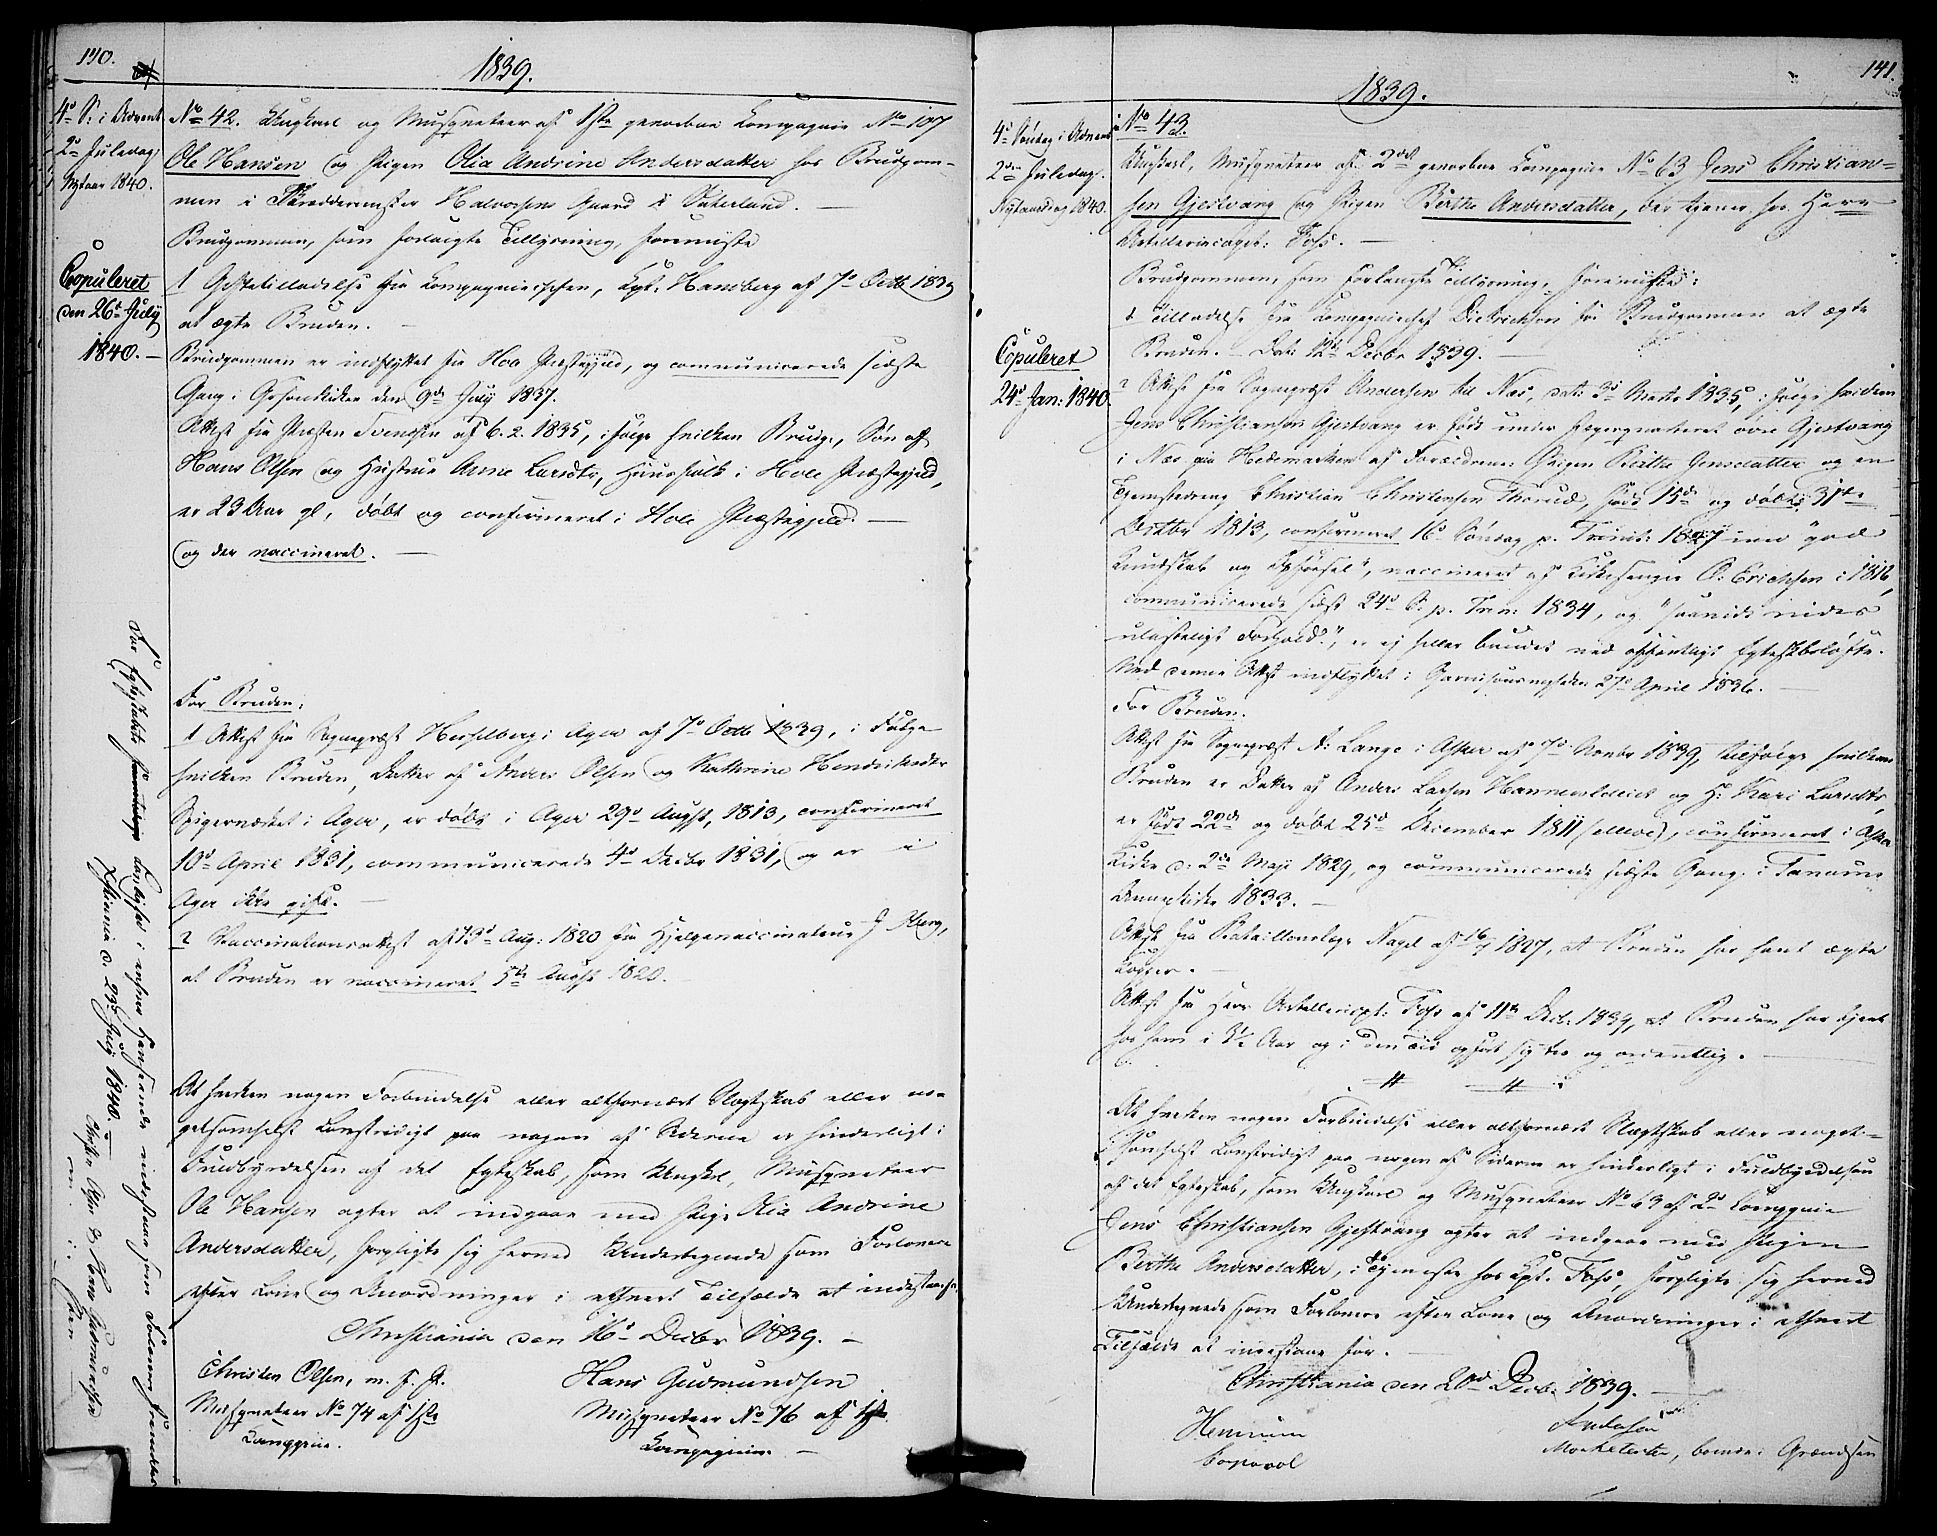 140.
1839.
4d S. i Advent.
2d Juledag.
Nytaar 1840.
Copuleret
den 26d July
1840. —
No 42. Ungkarl og Musqueteer af 1ste gevorbne Compagnie No 107
Ole Hansen og Pigen Olia Andrine Andersdatter hos Brudgom-
men i Skræddermester Halvorsens Gaard i Vaterland. —
Brudgommen, som forlangte Tillysning, foreviiste
1 Giftetilladelse fra Compagniechefen, Cpt. Hansberg af 7d Octb 1839
at ægte Bruden. —
Brudgommen er indflyttet fra Hole Præstegjeld, og communicerede sidste
Gang i Garnisonskirken den 9de July 1837.
Attest fra Præsten Svendsen af 6. 2. 1835, ifølge hvilken Brudg., Søn af
Hans Olsen og Hustrue Anne Larsdtr, Huusfolk i Hole Præstegjeld,
er 23 Aar gl, døbt og confirmeret i Hole Præstegjeld. —
og der vaccineret. —
For Bruden:
1 Attest fra Sognepræst Hesselberg i Ager af 7d Octb 1839, i Følge
hvilken Bruden, Datter af Anders Olsen og Kathrine Hendriksdtr
Spigerværket i Ager, er døbt i Ager 29d Augst, 1813, confirmeret
10d April 1831, communicerede 4d Decbr 1831, og er i
Ager ikke gift. —
2 Vaccinationsattest af 13d Aug: 1820 fra Hjelpevaccinateur J. Berg,
at Bruden er vaccineret 5te Augst 1820.
At hverken nogen Forbindelse eller altfornært Slægtskab eller no-
getsomhelst Lovstridigt paa nogen af Siderne er hinderligt i
Fuldbyrdelsen af det Egteskab, som Ungkl, Musqueteer
Ole Hansen agter at indgaae med Pige Olia Andrine
Andersdatter, forpligte sig herved Undertegnede som Forlovere
efter Love og Anordninger i ethvert Tilfælde at indestaae for.
Christiania den 16d Decbr 1839. —
Christen Olsen, m. f. P.
Musqueteer No 74 af 1ste
Compagnie.
Hans Gudmundsen
Musqueteer No 76 af 1ste
Compagnie. —
For Egteskabets lovlighed i enhver Henseende indestaae som Forlovere fremdeles
Xstiania d. 23d July 1840. —
Christen Olsen & Hans Gudmundsen
m. i. Pen
141.
1839.
4d Søndag i Advent
2den Juledag.
Nytaarsdag 1840.
Copuleret
24d Jan: 1840.
No 43.
Ungkarl, Musqueteer af 2det gevorbne Compagnie No 63 Jens Christian-
sen Gjestvang og Pigen Berthe Andersdatter, der tjener hos Herr
Artilleriecapt: Foss. —
Brudgommen, som forlangte Tillysning, foreviiste:
1 Tilladelse fra Compagniechef Dietrichson for Brudgommen at ægte
Bruden. — Dat: 12te Decbr 1839. —
2 Attest fra Sognepræst Andersen til Næs, dat: 3d Marts 1835, i følge hvilken
Jens Christiansen Gjestvang er født under Jegerqvarteret øvre Gjestvang
i Næs paa Hedemarken af Forældrene: Pigen Berthe Jensdatter og en
Tjenestedreng Christian Christensen Tharud, født 15de og døbt 31te
Octbr 1813, confirmeret 16d Søndag p. Trinit: 1827 med "god
Kundskab og Opførsel", vaccineret af Kirkesanger O. Erichsen i 1816,
communicerede sidst 24d S. p. Trin: 1834, og "saavidt vides
ulasteligt Forhold", er ej heller bundet ved offentligt Egteskabsløfte.
Med denne Attest indflyttet i Garnisonsmenigheden 27d April 1836. —
For Bruden.
Attest fra Sognepræst A: Lange i Asker af 7d Novbr 1839, ifølge hvilken
Bruden er Datter af Anders Larsen Hannevoldeiet og H: Kari Larsdtr,
er født 22de og døbt 25d December 1811 (elleve), confirmeret i Asker
Kirke d: 2den Maji 1829, og communicerede sidste Gang i Tanum
Annexkirke 1833. —
Attest fra Bataillonslæge Nagel af 1827, at Bruden har havt ægte
Kopper. —
Attest fra Herr Artillericpt: Foss af 11te Decb: 1839, at Bruden har tjent
hos ham i 3½ Aar og i den Tid opført sig tro og ordentlig. —
At hverken nogen Forbindelse eller altfornært Slægtskab eller noget-
somhelst Lovstridigt paa nogen af Siderne er hinderligt i Fuldbyrdelsen
af det Egteskab, som Ungkarl og Musqueteer No 63 af 2d Compgnie
Jens Christiansen Gjestvang agter at indgaae med Pigen
Berthe Andersdatter, i Tjeneste hos Cpt. Foss, forpligte sig herved
Undertegnede som Forlovere efter Love og Anordninger i ethvert
Tilfælde at indestaae for. —
Christiania den 20d Decb: 1839. —
Corporal